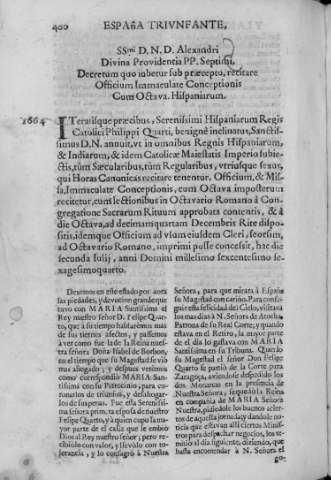 400 ESPAÑA TRIUNFANTE.
SSmi D. N. D. Alexandri
Divina Providentia PP. Septimi,
Decretum quo iubetur sub præcepto, recitare
Officium Immaculate Conceptionis
Cum Octava. Hispaniarum.
1664 ITeratisque præcibus, Serenissimi Hispaniarum Regis
Catolici Philippi Quarti, benignè inclinatus, Sanctis-
simus D.N. annuit, vt in omnibus Regnis Hispaniarum,
& Indiarum, & idem Catolicæ Maiestatis Imperio subie-
ctis, tùm Sæcularibus, tùm Regularibus, vtriusque sexus,
qui Horas Canonicas recitare tenentur, Officium, & Mis-
sa, Immaculate Conceptionis, cum Octava imposterum
recitetur, cum lectionibus in Octavario Romano à Con-
gregatione Sacrarum Rituum approbata contentis, & à
die Octava, ad decimam quartam Decembris Rite dispo-
sitis, idemque Officium ad vsum eiusdem Cleri, seorsim,
ad Octavario Romano, imprimi posse concessit, hac die
secunda Iulij, anni Domini millesimo sextentesimo se-
xagesimoquarto.
Dexemos en este estado por aora
sus piedades, y devotion grande que
tuvo con MARIA Santissima el
Rey nuestro señor D. Felipe Quar-
to, que à su tiempo hablaremos mas
de sus tiernos afectos, y passemos
à ver como fue la de la Reina nues-
tra señora Doña Isabel de Borbon,
en el tiempo que su Magestad se viò
mas ahogado; y despues veremos
como correspondiò MARIA San-
tissima con su Patrocinio, para co-
ronarlos de triunfos, y desahogar-
los de suspenas. Fue esta Serenissi-
ma señora prim. ra esposa de nuestro
Felipe Quarto, y à quien cupo la ma-
yor parte de el casa que se embiò
Dios al Rey nuestro señor; pero re-
cibiòlo con valor, y llevòlo con to-
lerancia, y lo consagrò à Nuestra
Señora, para que mirara à España
su Magestad con cariño. Para conse-
guir esta felicidad del Cielo, visitava
los mas dias à N. Señora de Atocha,
Patrona de su Real Corte; y quando
estava en el Retiro, la mayor parte
de el dia lo gastava con MARIA
Santissima en su Tribuna. Quando
su Magestad el señor Don Felipe
Quarto se partiò de la Corte para
Zaragoça, aviendose despedido los
dos Monarcas en la presencia de
Nuestra Señora; se quedò la Reina
en compañia de MARIA Señora
Nuestra, pidiendole los buenos acier-
tos de aquesta jornada; y dandole no-
ticia que estavan alli ciertos Minist-
ros para despachar negocios, los re-
mitiò al dia siguiente, diziendo, que
hasta encomendar à N. Señora el
go-